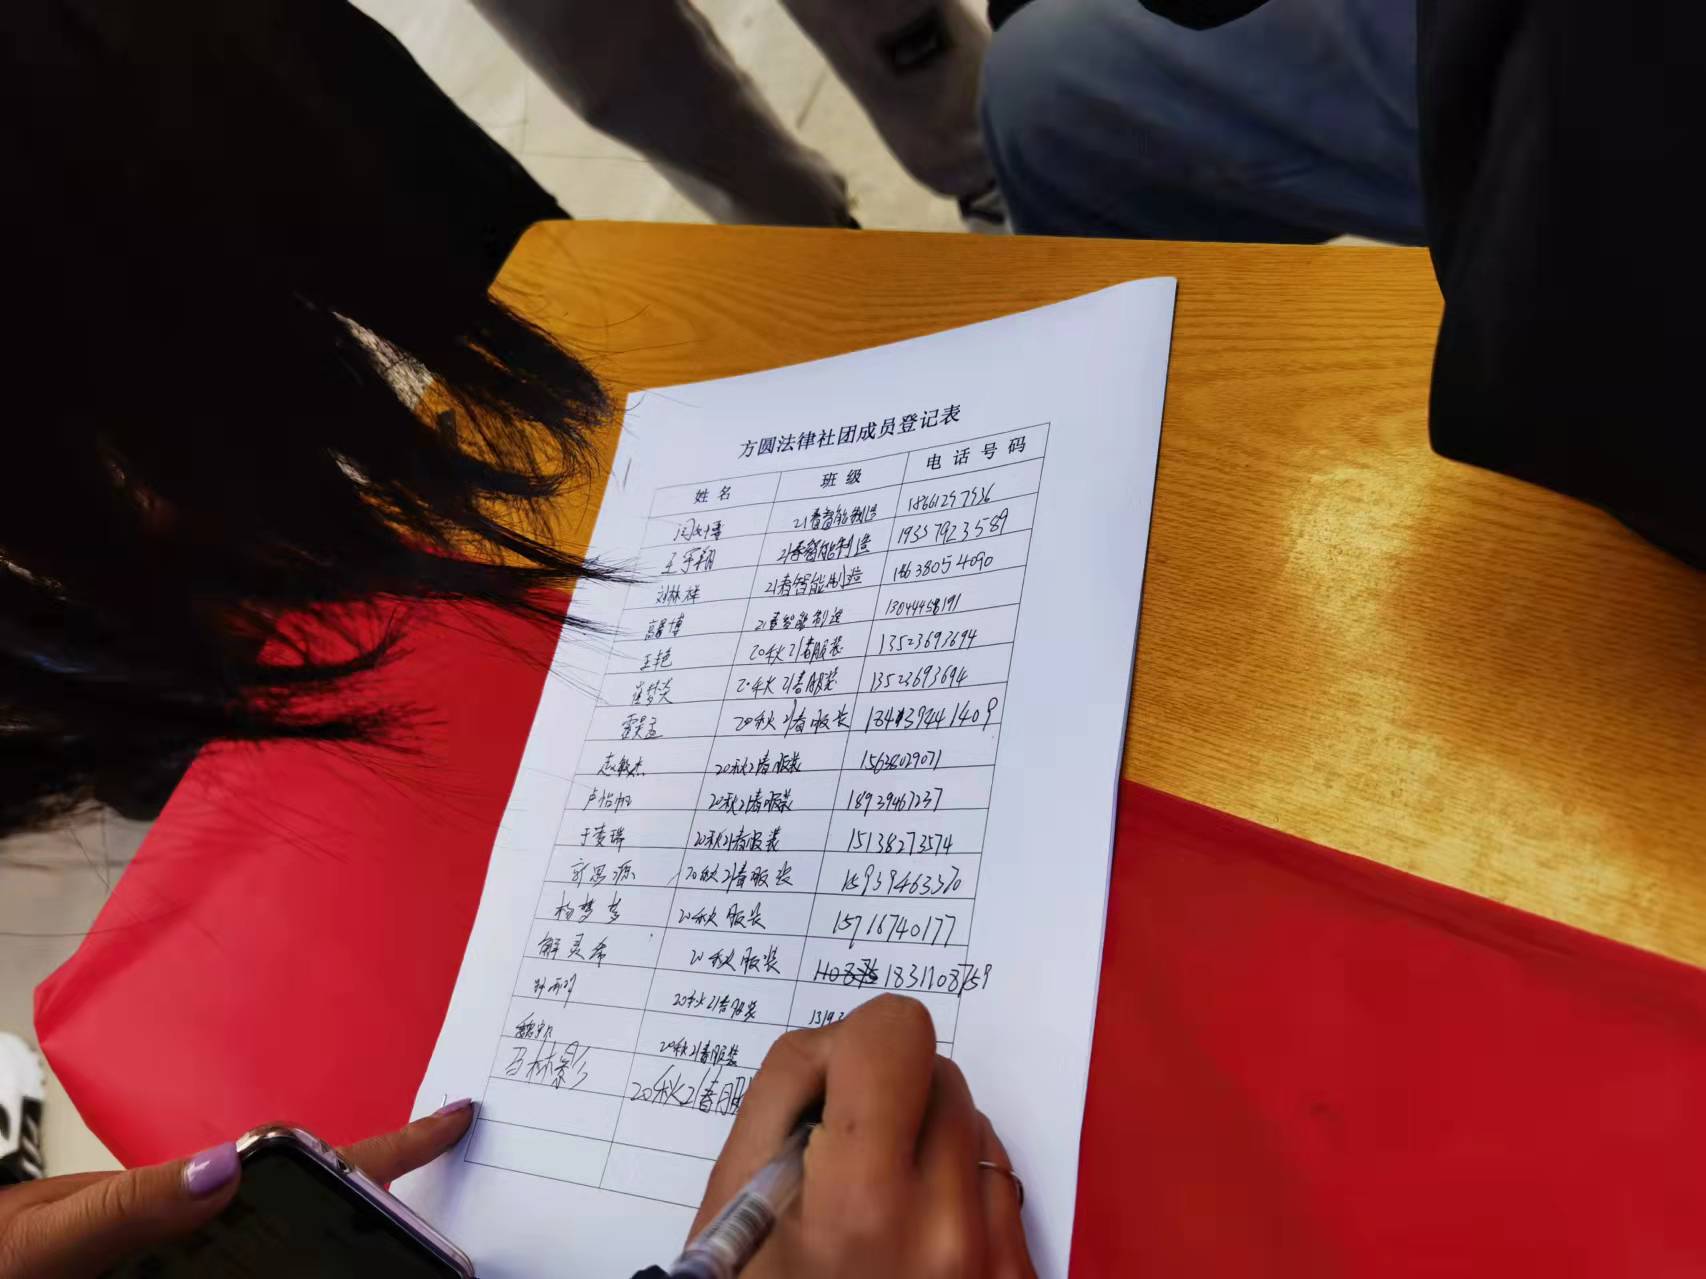 方圆法律社团成员登记表
姓名 班级 电话号码
21春智能制造 18661297936
王宇翔 21春智能制造 19337923589
刘林祥 21春智能制造 18638054090
21春智能制造 13044458191
王艳 20秋21春服装 13523693694
崔梦炎 20秋21春服装 13523693694
雷昊孟 20秋21春服装 1409
20秋21春服装 15638029071
卢怡帆 20秋21春服装 18939467237
于雯瑞 20秋21春服装 15138273574
靳思源 20秋21春服装 15939463370
杨梦梦 20秋服装 15716740177
解灵希 20秋服装 18311087759
20秋21春服装
20秋21春服装
马林影 20秋21春服